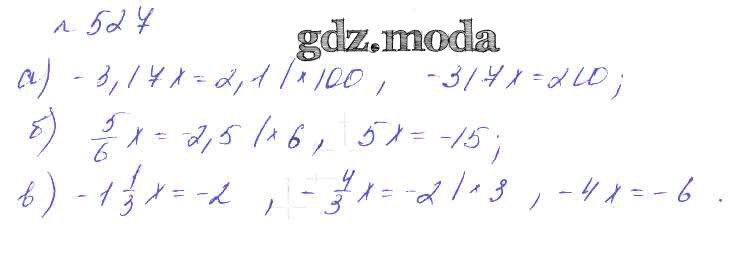 № 527
gdz.moda
а) -3,17x = 2,1 |×100, -317x = 210;
б) 5/6 x = -2,5 |×6, 5x = -15;
в) -1 1/3 x = -2, -4/3 x = -2 |×3, -4x = -6.